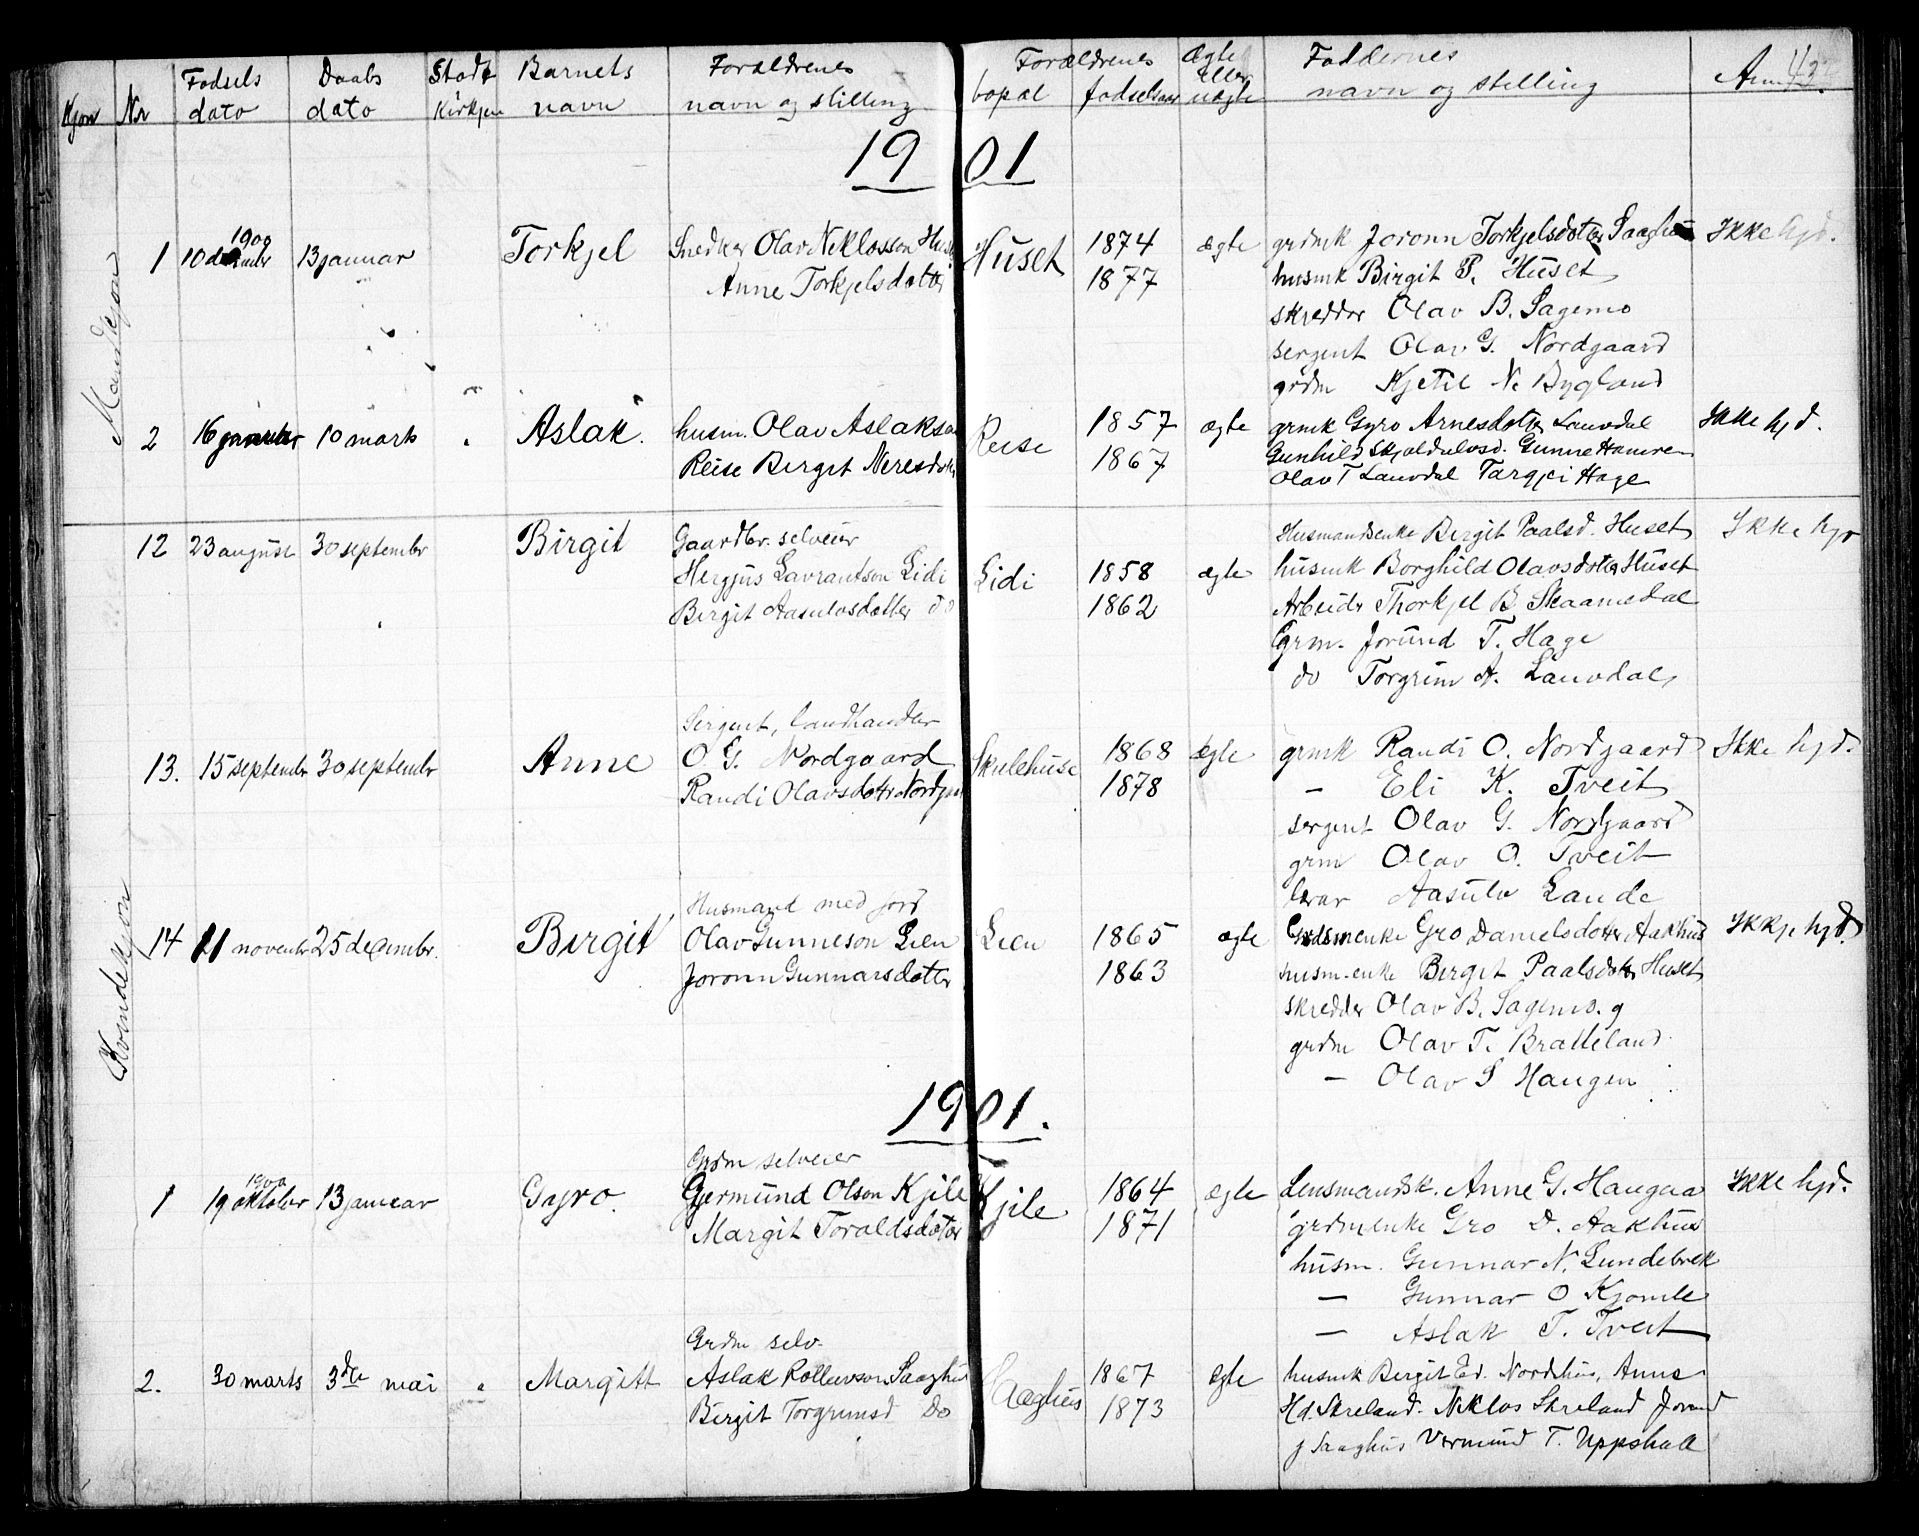 Kjøn Nr Fødsels dato Daabs dato Stad Kirkjen Barnets navn Forældrenes navn og stilling Forældrenes bopæl fødselsaar Ægte eller uægte Faddernes navn og stilling Anm. 43
1901
Mandkjøn
1 10 december 1900 13 januar Torkjel Snedker Olav Niklosson Huset Huset 1874 ægte grdmk Joronn Torkjelsdotter Saaghus Ikke hjd.
Anne Torkjelsdotter 1877 husmk Birgit P. Huset
skredder Olav B. Sagemo
sergent Olav G. Nordgaard
grdm Kjetil N. Bygland
2 16 januar 10 marts " Aslak. husm. Olav Aslakson Reise 1857 ægte grmk Gyro Arnesdotter Lauvdal Ikke hjd.
Reise Birgit Neresdotter 1867 Gunhild Skjoldulvsd. Gunne Hamre
Olav T Lauvdal Targjei Hage
Kvindekjøn
12 23 august 30 september Birgit Gaardbr. selveier Husmandsenke Birgit Paalsd. Huset Ikke hjd
Hergjus Lavrantson Lidi Lidi 1858 ægte husmk Borghild Olavsdotter Huset
Birgit Aasulvsdotter do 1862 Arbeider Thorkjel B Skaamedal
Grm. Jorund T. Hage
do Torgrim A. Lauvdal
Sergent, landhandler
13. 15 septembr 30 septembr Anne O. G. Nordgaard Skulehuse 1868 ægte grmk Randi O. Nordgaard Ikke hjd.
Randi Olavsdottr Nordgaard 1878 — Eli K. Tveit
sergent Olav G. Nordgaard
grm Olav O. Tveit
lærar Aasulv Lande
Husmand med jord
14 11 novembr 25 decembr. Birgit Olav Gunneson Lien Lien 1865 ægte Grdsmenke Gro Danielsdotter Aakhus Ikkje hjd.
Joronn Gunnarsdotter 1863 husm-enke Birgit Paalsdotter Huset
skredder Olav B. Sagemo. g
grdm Olav T. Bratteland
— Olav S Haugen
1901.
Grdm selveier
1 19 oktober 1900 13 januar Gyro. Gjermund Olson Kjile Kjile 1864 ægte Lensmandsk. Anne G. Haugaa Ikke hjd.
Margit Toraldsdotter 1871 grdmenke Gro D. Aakhus
husm. Gunnar N. Lundebrek
— Gunnar O Kjomle
— Aslak T. Tveit
Grdm selv.
2. 30 marts 3die mai " Margitt Aslak Rolleivson Saaghus Haaghus 1867 ægte husmk Birgit Ed. Nordhus, Anne
Birgit Torgrimsd Do 1873 Hd. Skreland. Niklos Skreland Jorund
J Saaghus Vermund T. Uppstall